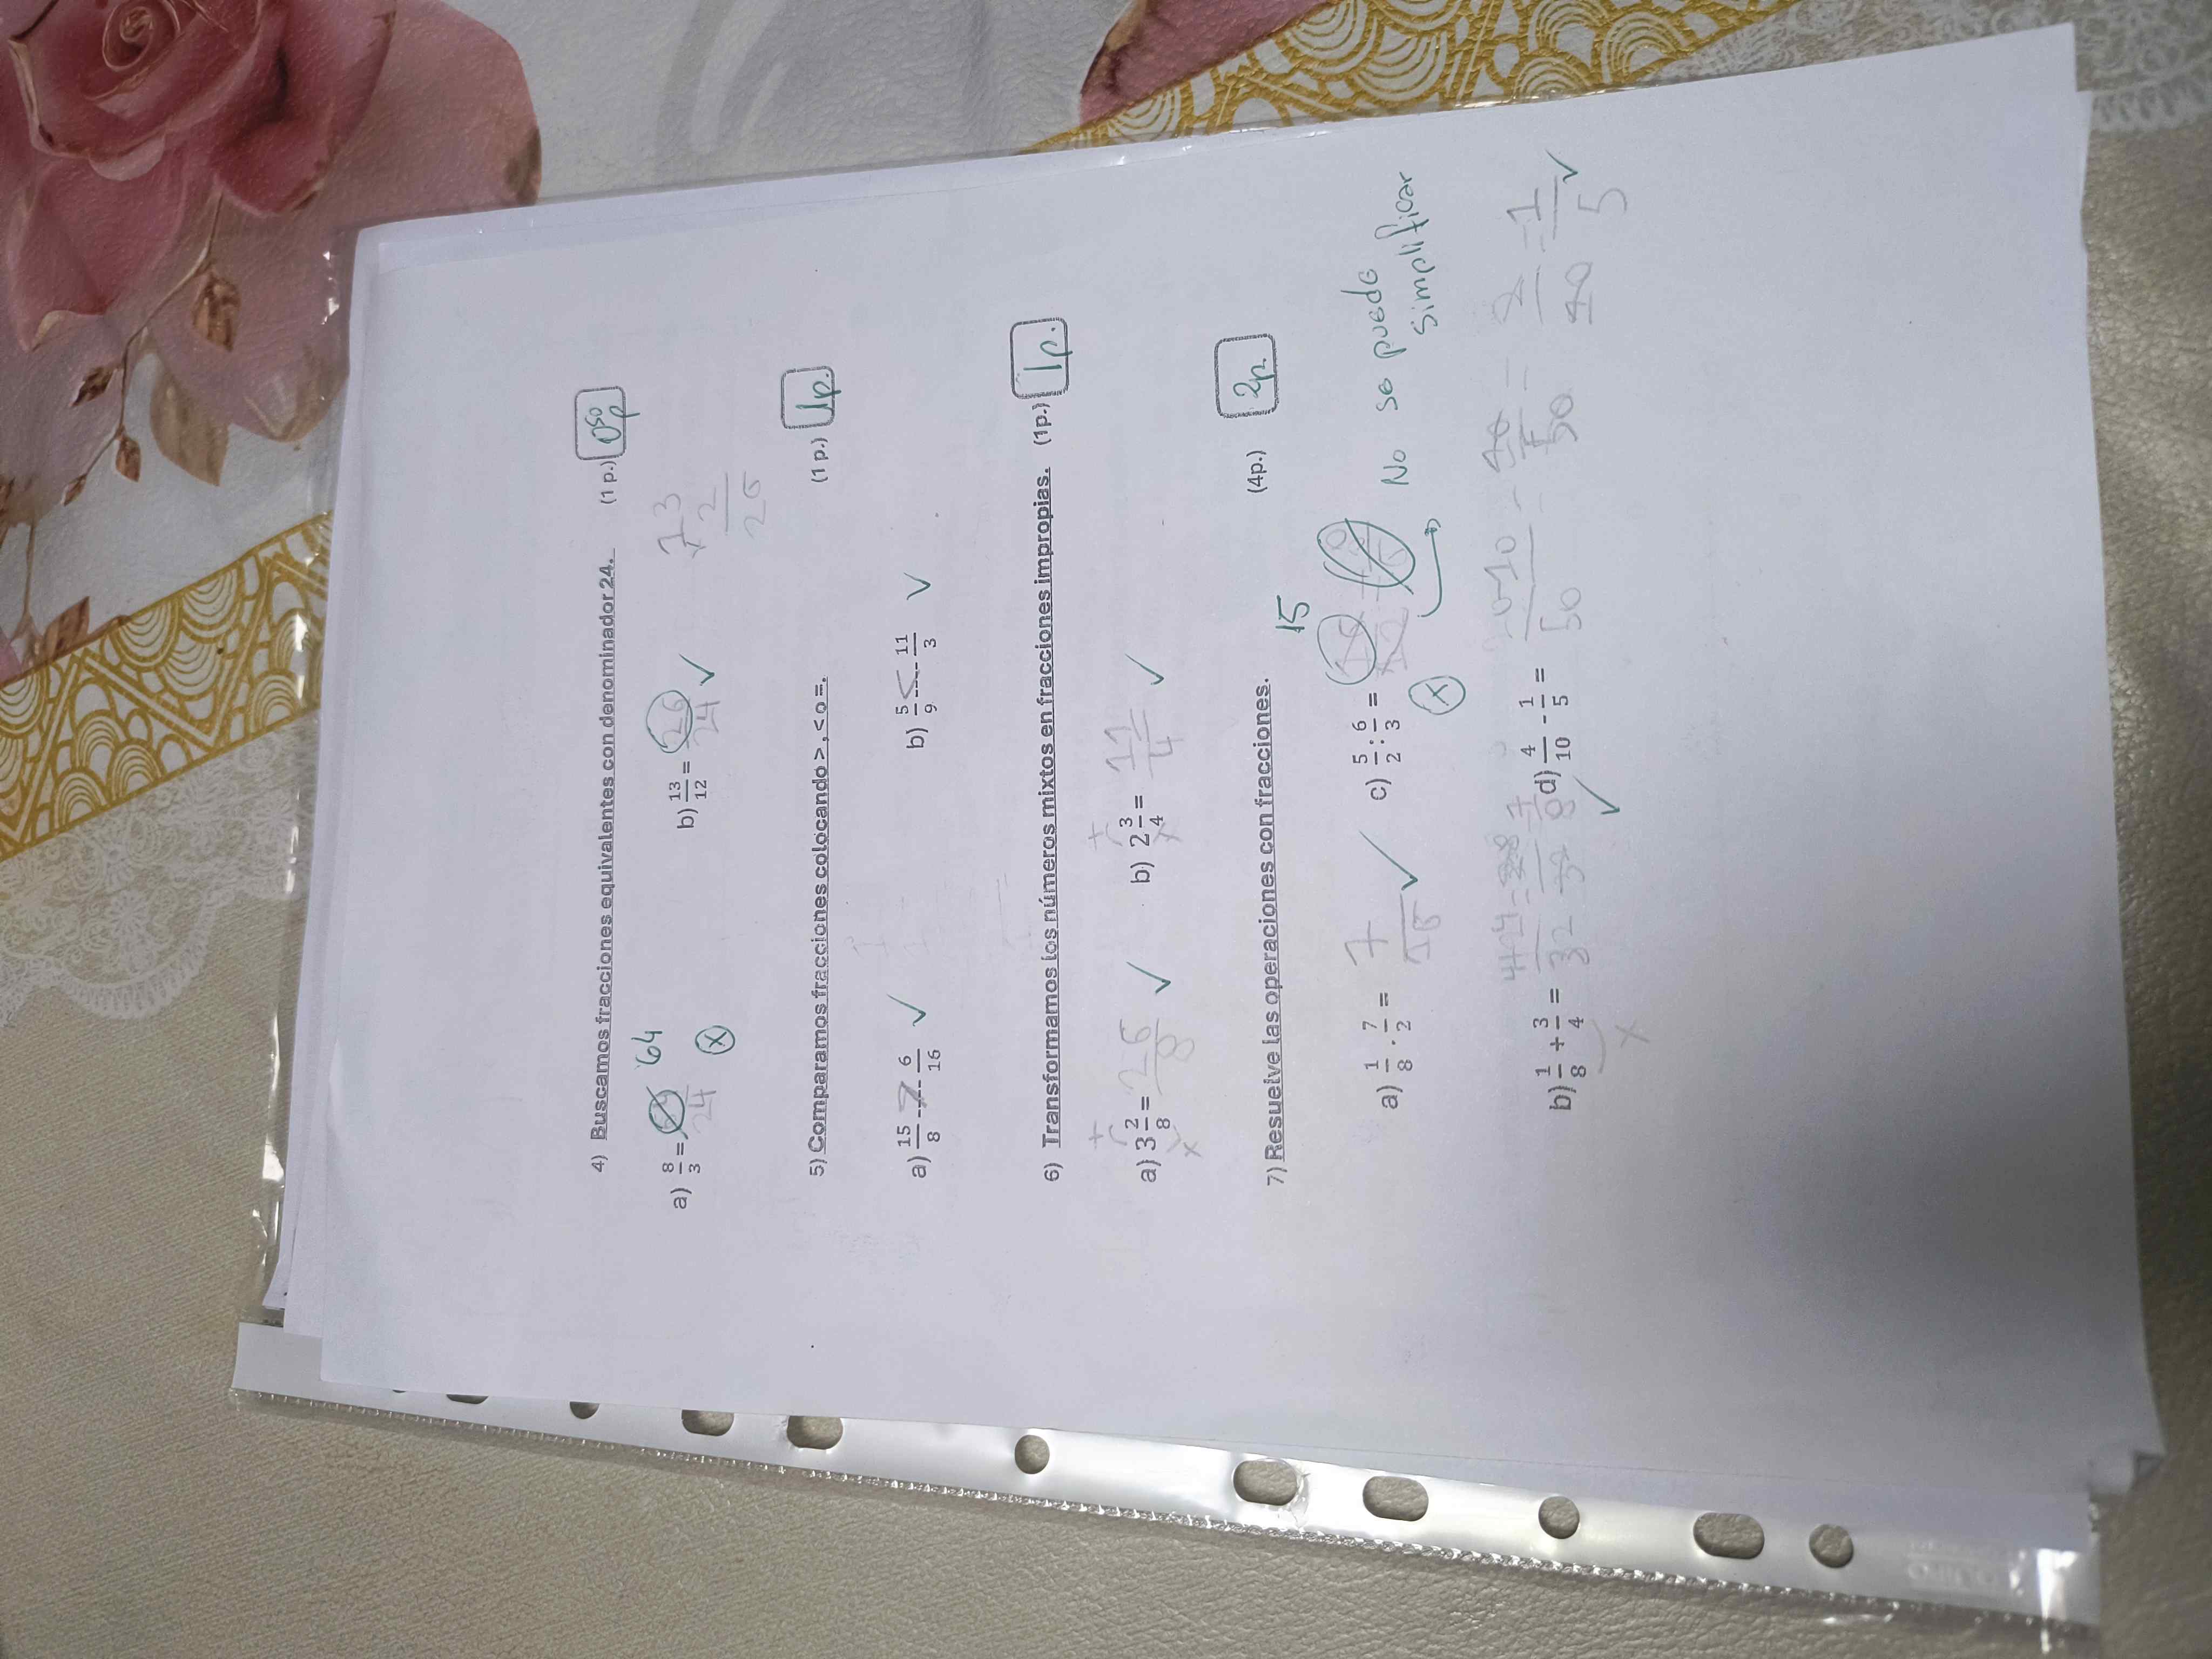 4) Buscamos fracciones equivalentes con denominador 24. (1 p.) 0,50 p
a) 8/3 = /24 64 b) 13/12 = 26/24 ✓ 13
x 2
26
5) Comparamos fracciones colocando >, < o =. (1 p.) 1p.
a) 15/8 > 6/16 ✓ b) 5/9 < 11/3 ✓
6) Transformamos los números mixtos en fracciones impropias. (1p.) 1p.
a) 3 2/8 = 26/8 ✓ b) 2 3/4 = 11/4 ✓
7) Resuelve las operaciones con fracciones. (4p.) 2p.
a) 1/8 · 7/2 = 7/16 ✓ c) 5/2 : 6/3 = 15 No se puede
simplificar
b) 1/8 + 3/4 = 4+24/32 = 28/32 = 7/8 ✓ d) 4/10 - 1/5 = -10/50 = 10/50 = 2/10 = 1/5 ✓